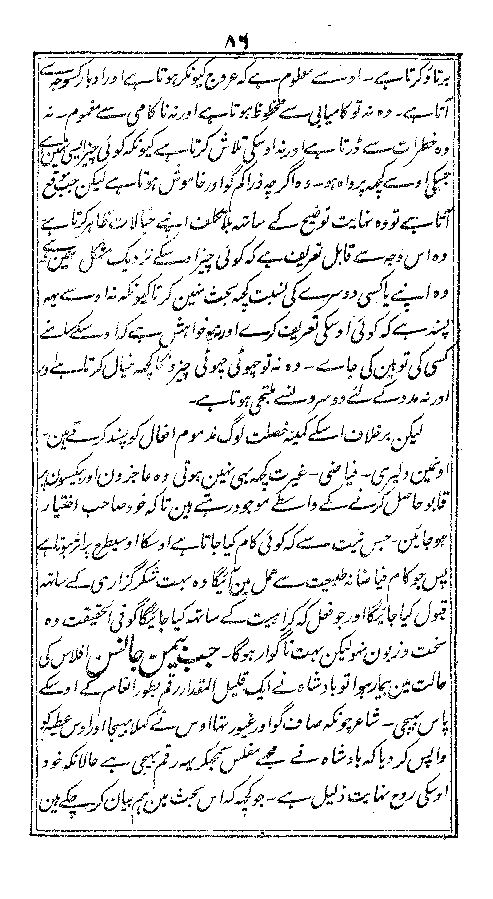 ۸۶
برتاؤ کرتا ہے۔ اوسے معلوم ہے کہ عروج کیونکر ہوتا ہے اور ادبار کس وجہ سے
آتا ہے۔ وہ نہ تو کامیابی سے محظوظ ہوتا ہے اور نہ ناکامی سے مغموم۔ نہ
وہ خطرات سے ڈرتا ہے اور نہ اوسکی تلاش کرتا ہے کیونکہ کوئی چیز ایسی نہین ہے
جسکی اوسے کچھ پرواہ ہو۔ وہ اگرچہ ذرا کم گو اور خاموش ہوتا ہے لیکن جب موقع
آتا ہے تو وہ نہایت توضیح کے ساتھ بلا تکلف اپنے خیالات ظاہر کرتا ہے
وہ اس وجہ سے قابل تعریف ہے کہ کوئی چیز اوسکے نزدیک مشکل نہین ہے
وہ اپنے یا کسی دوسرے کی نسبت کچھ بحث نہین کرتا کیونکہ نہ اوسے یہہ
پسند ہے کہ کوئی اوسکی تعریف کرے اور نہ یہ خواہش ہے کہ اوسکے سامنے
کسی کی توہین کی جاے۔ وہ نہ تو چھوٹی چھوٹی چیزونکا کچھ خیال کرتا ہے
اور نہ مدد کے لئے دوسرونسے ملتجی ہوتا ہے۔
لیکن برخلاف اسکے کمینہ خصلت لوگ مذموم افعال کو پسند کرتے ہین۔
اونمین دلیری۔ فیاضی۔ غیرت کچھ بہی نہین ہوتی وہ عاجزون اور بیکسون پر
قابو حاصل کرنے کے واسطے موجود رہتے ہین تاکہ خود صاحب اختیار
ہوجائین۔ جس نیت سے کہ کوئی کام کیا جاتا ہے اوسکا اوسیطرح پر اثر ہوتا ہے
پس جو کام فیاضانہ طبیعت سے عمل مین آئیگا وہ بہت شکرگزاری کے ساتھ
قبول کیا جائیگا اور جو فعل کہ کراہیت کے ساتھ کیا جائیگا گو فی الحقیقت وہ
سخت و زبون نہو لیکن بہت ناگوار ہوگا۔ جب بیمن جانسن افلاس کی
حالت مین بیمار ہوا تو بادشاہ نے ایک قلیل المقدار رقم بطور انعام کے اوسکے
پاس بہیجی۔ شاعر چونکہ صاف گو اور غیور تہا اوس نے کہلا بہیجا اور اوس عطیہ کو
واپس کردیا کہ بادشاہ نے مجھے مفلس سمجھکر یہہ رقم بہیجی ہے حالانکہ خود
اوسکی روح نہایت ذلیل ہے۔ جو کچھہ کہ اس بحث مین ہم بیان کرچکے ہین